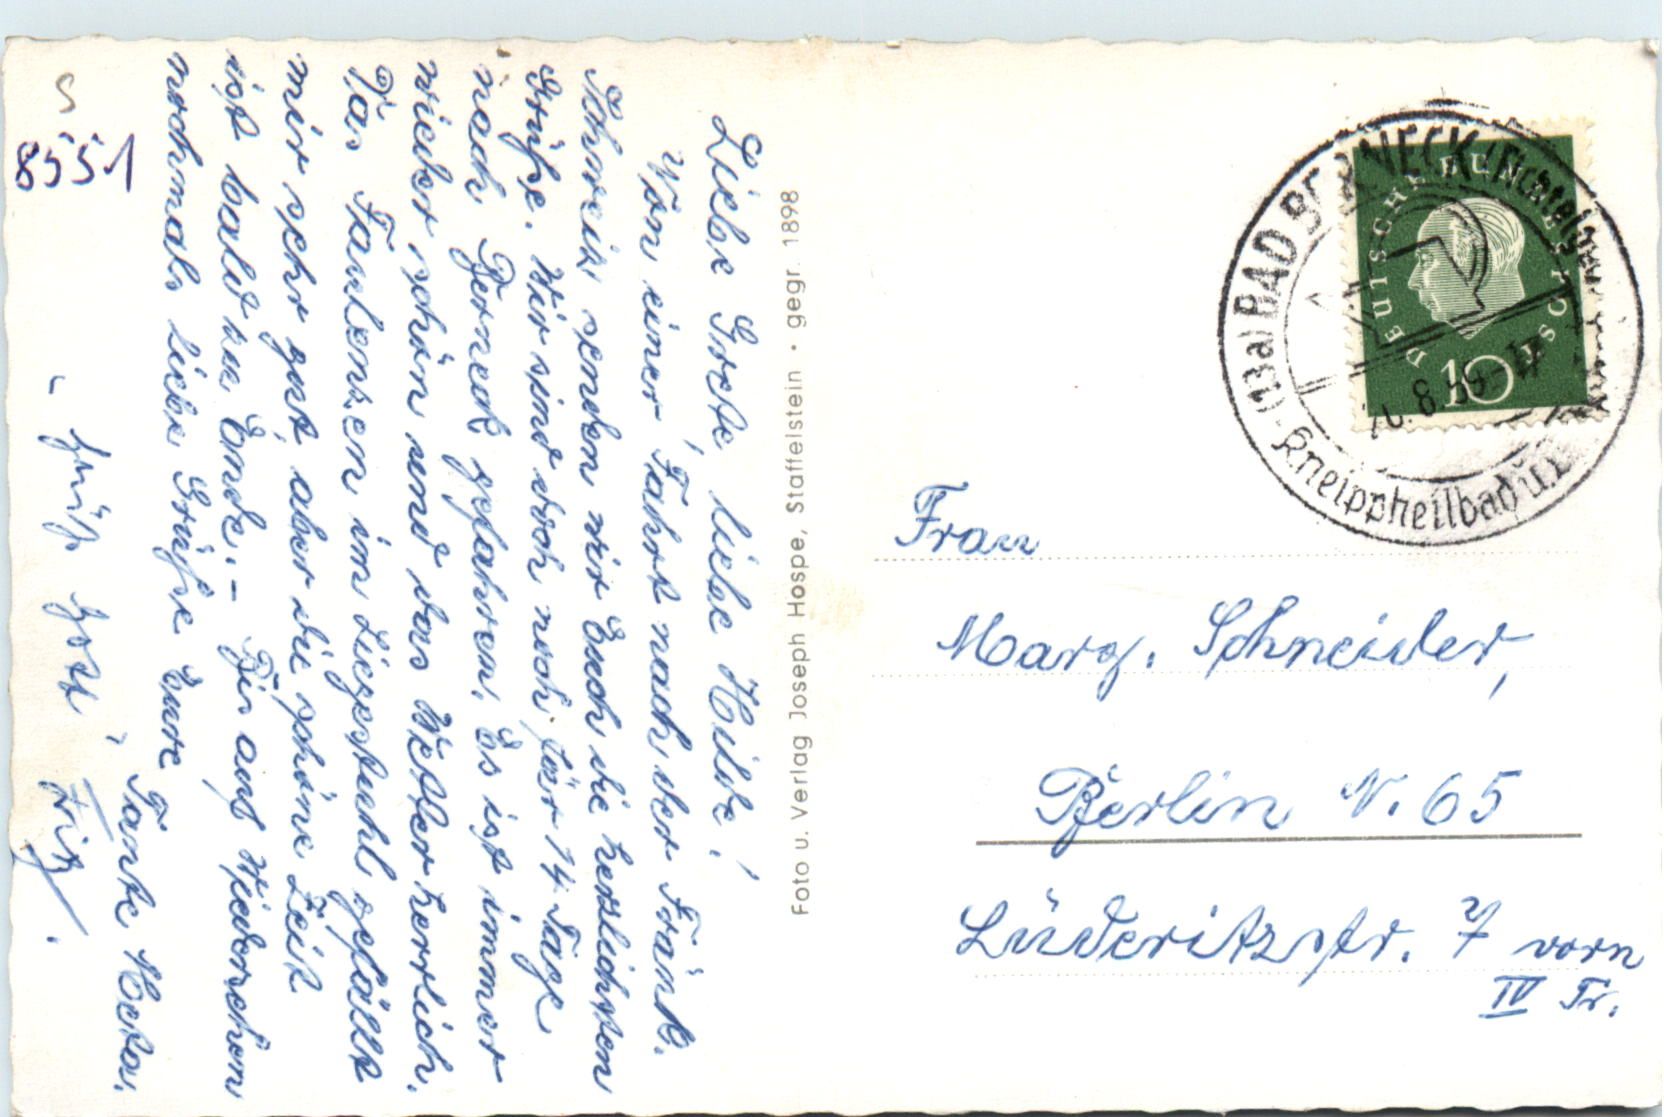 Liebe Grete, liebe Hilde!
Von einer Fahrt nach der Fränk.
Schweiz senden wir Euch die herzlichsten
Grüße. Wir sind doch noch für 14 Tage
nach Berneck gefahren. Es ist immer
wieder schön und das Wetter herrlich.
Das Faulenzen im Liegestuhl gefällt
mir sehr gut, aber die schöne Zeit
ist bald zu Ende. – Bis aufs Wiedersehen
nochmals liebe Grüße Eure
Tante Meta.
"Grüß Gott" Fritz.
8551
Foto u. Verlag Joseph Hospe, Staffelstein · gegr. 1898
(13a) BAD BERNECK (Fichtelgebirge)
Kneippheilbad u.
8.59-17
DEUTSCHE BUNDESPOST
10
Frau
Marg. Schneider,
Berlin N. 65
Lüderitzstr. 7 vorn
IV Tr.